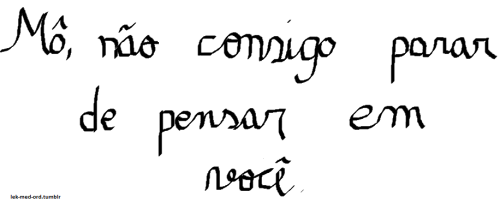 Mô, não consigo parar
de pensar em
você
lek-med-ord.tumblr